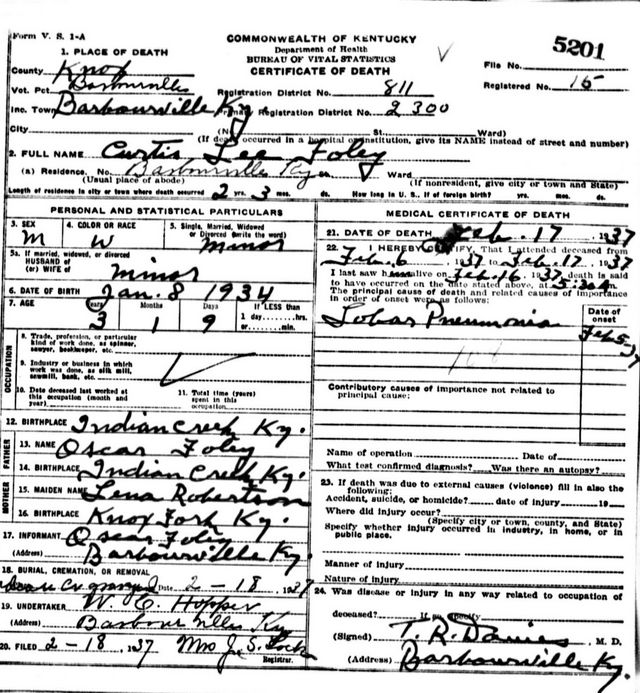 Form V. S. 1-A
COMMONWEALTH OF KENTUCKY
Department of Health
BUREAU OF VITAL STATISTICS
CERTIFICATE OF DEATH
5201
File No.
Registered No. 15
1. PLACE OF DEATH
County Knox
Vot. Pct. Barbourville
Registration District No. 811
Inc. Town Barbourville Ky. Primary Registration District No. 2300
City (No. St. Ward)
(If death occurred in a hospital or institution, give its NAME instead of street and number)
2. FULL NAME Curtis Lee Foley
(a) Residence. No. Barbourville Ky Ward
(Usual place of abode) (If nonresident, give city or town and State)
Length of residence in city or town where death occurred 2 yrs. 3 mos. ds. How long in U. S., if of foreign birth? yrs. mos. ds.
PERSONAL AND STATISTICAL PARTICULARS
3. SEX M
4. COLOR OR RACE W
5. Single, Married, Widowed or Divorced (write the word) Minor
5a. If married, widowed, or divorced
HUSBAND of
(or) WIFE of Minor
6. DATE OF BIRTH Jan. 8 1934
7. AGE Years 3 Months 1 Days 9 If LESS than 1 day.....hrs. or.....min.
OCCUPATION
8. Trade, profession, or particular kind of work done, as spinner, sawyer, bookkeeper, etc.
9. Industry or business in which work was done, as silk mill, sawmill, bank, etc.
10. Date deceased last worked at this occupation (month and year)
11. Total time (years) spent in this occupation
12. BIRTHPLACE Indian Creek Ky.
FATHER
13. NAME Oscar Foley
14. BIRTHPLACE Indian Creek Ky.
MOTHER
15. MAIDEN NAME Lena Robertson
16. BIRTHPLACE Knox Fork Ky.
17. INFORMANT Oscar Foley
(Address) Barbourville Ky.
18. BURIAL, CREMATION, OR REMOVAL
Date 2-18 1937
19. UNDERTAKER W. C. Hopper
(Address) Barbourville Ky
20. FILED 2-18 1937 Mrs J. S. Lock
Registrar.
MEDICAL CERTIFICATE OF DEATH
21. DATE OF DEATH Feb. 17 1937
22. I HEREBY CERTIFY, That I attended deceased from
Feb. 6 1937 to Feb. 17 1937
I last saw him alive on Feb. 16 1937 death is said
to have occurred on the date stated above, at 5:30 a m
The principal cause of death and related causes of importance in order of onset were as follows:
Date of onset
Lobar Pneumonia Feb 5, 37
Contributory causes of importance not related to principal cause:
Name of operation Date of
What test confirmed diagnosis? Was there an autopsy?
23. If death was due to external causes (violence) fill in also the following:
Accident, suicide, or homicide? date of injury 19
Where did injury occur?
(Specify city or town, county, and State)
Specify whether injury occurred in industry, in home, or in public place.
Manner of injury
Nature of injury
24. Was disease or injury in any way related to occupation of deceased? If so, specify
(Signed) T. R. Davies M. D.
(Address) Barbourville Ky.